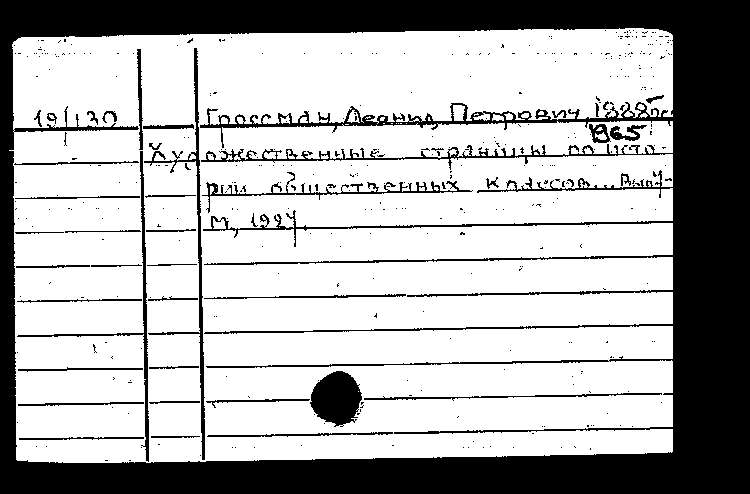 19/130 Гроссман, Леонид Петрович, 1888-
1965
Художественные страницы по исто-
рии общественных классов... Вып
М., 1927.